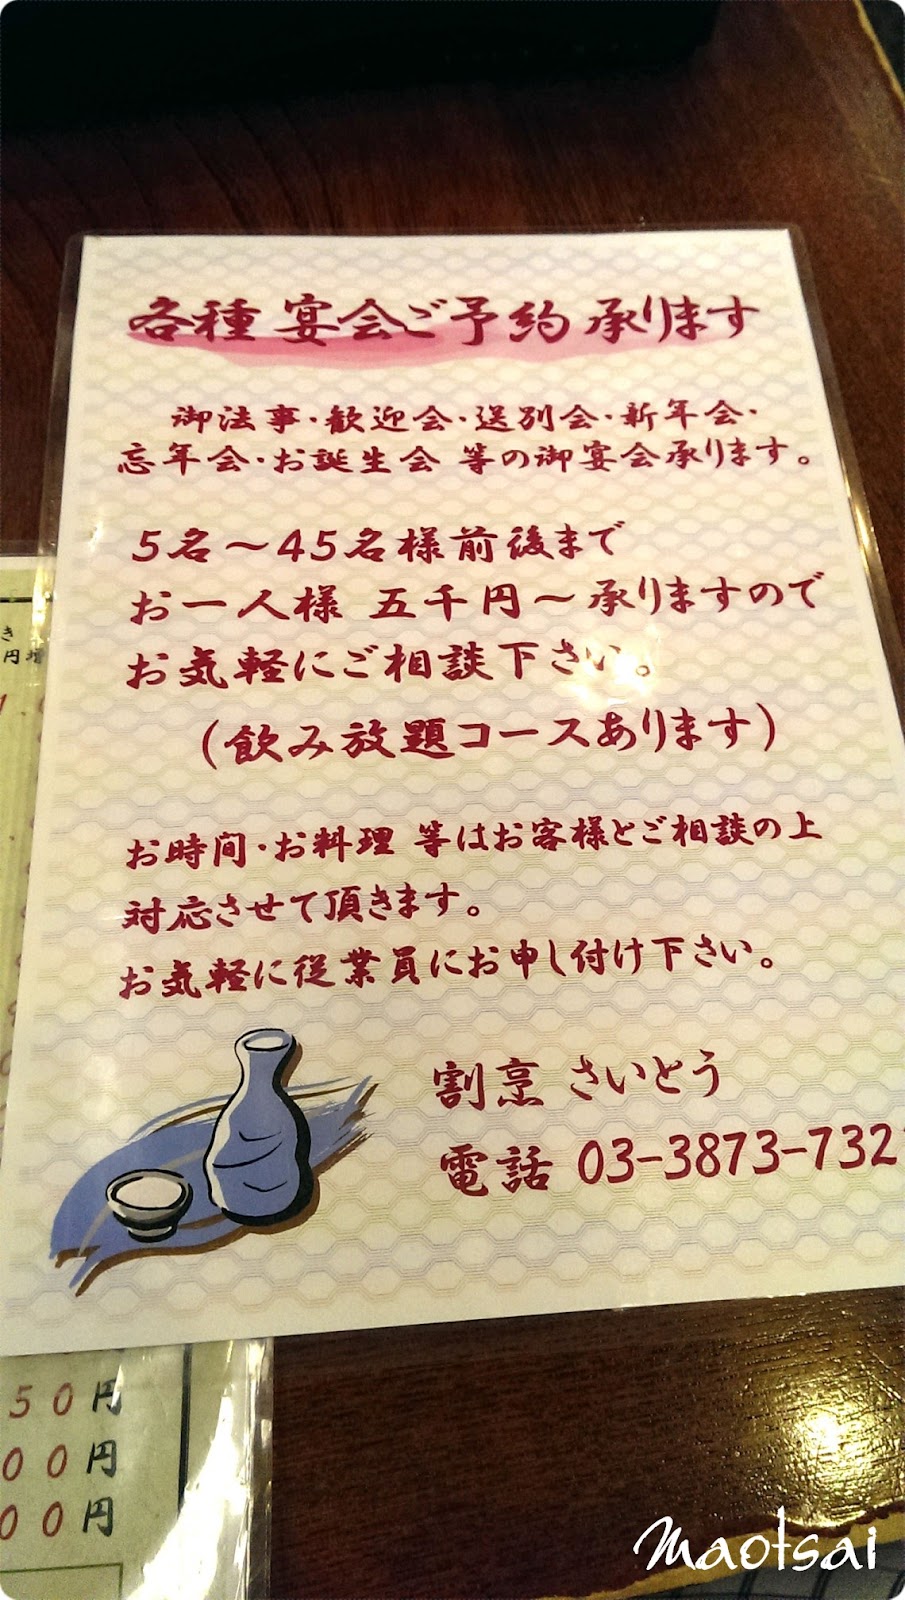 各種 宴会ご予約 承ります
御法事・歓迎会・送別会・新年会・
忘年会・お誕生会 等の御宴会承ります。
5名～45名様前後まで
お一人様 五千円～承りますので
お気軽にご相談下さい。
(飲み放題コースあります)
お時間・お料理 等はお客様とご相談の上
対応させて頂きます。
お気軽に従業員にお申し付け下さい。
割烹 さいとう
電話 03-3873-732
き
円増
50円
00円
00円
Maotsai